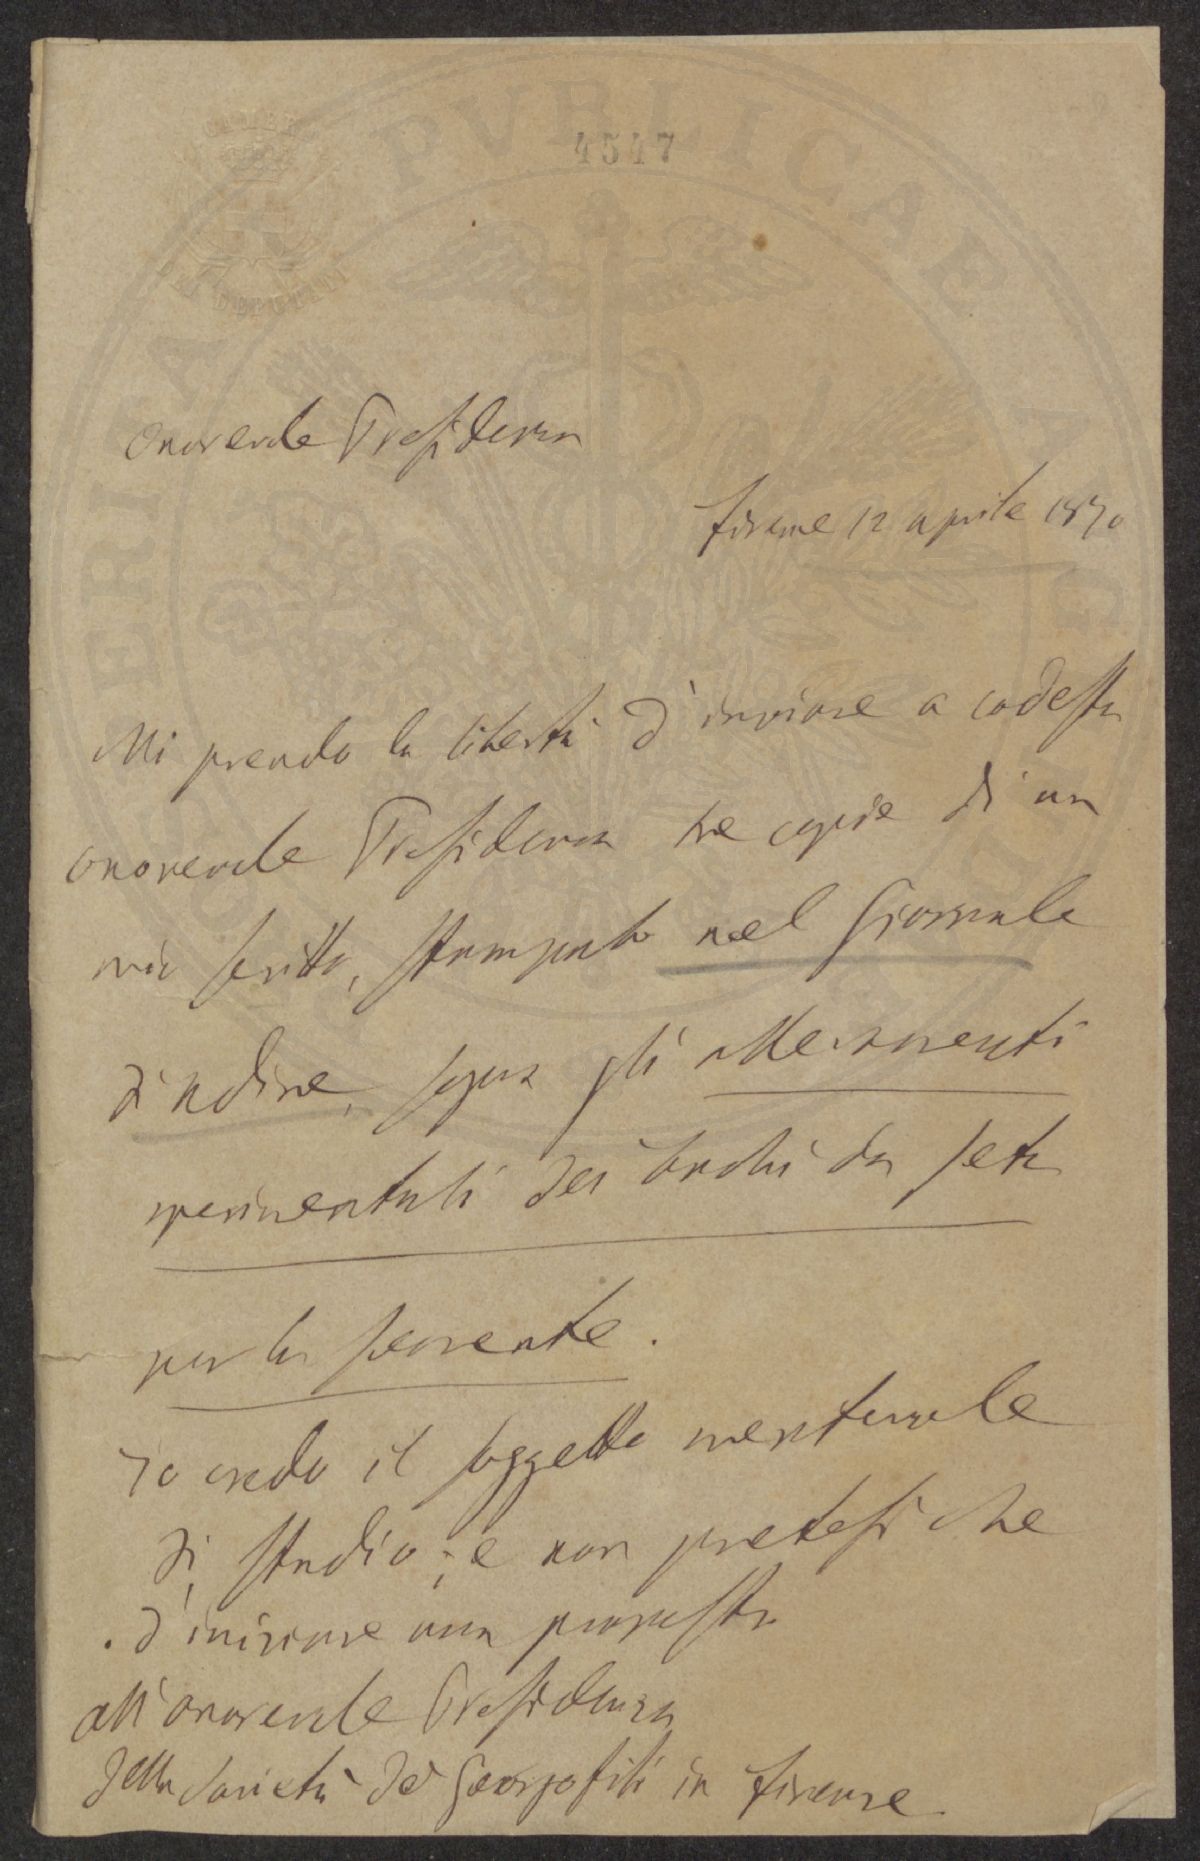 PVBLICAE
4547
CAMERA
DEI DEPUTATI
onorevole Presidenza
Firenze 12 aprile 1870
Mi prendo la libertà d'inviare a codesta
onorevole Presidenza tre copie di un
mio scritto, stampato nel Giornale
di Udine, sopra gli allevamenti
sperimentali dei bachi da seta
per la semente.
Io credo il soggetto meritevole
di studio; e non pretesi che
d'iniziare una proposta
all'onorevole Presidenza
della Società dei Georgofili in Firenze